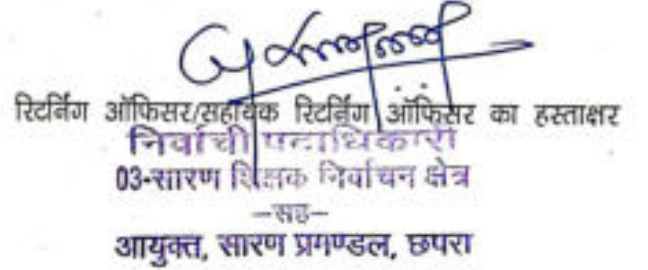 रिटर्निंग ऑफिसर/सहायक रिटर्निंग ऑफिसर का हस्ताक्षर
निर्वाची पदाधिकारी
03-सारण शिक्षक निर्वाचन क्षेत्र
-सह-
आयुक्त, सारण प्रमण्डल, छपरा